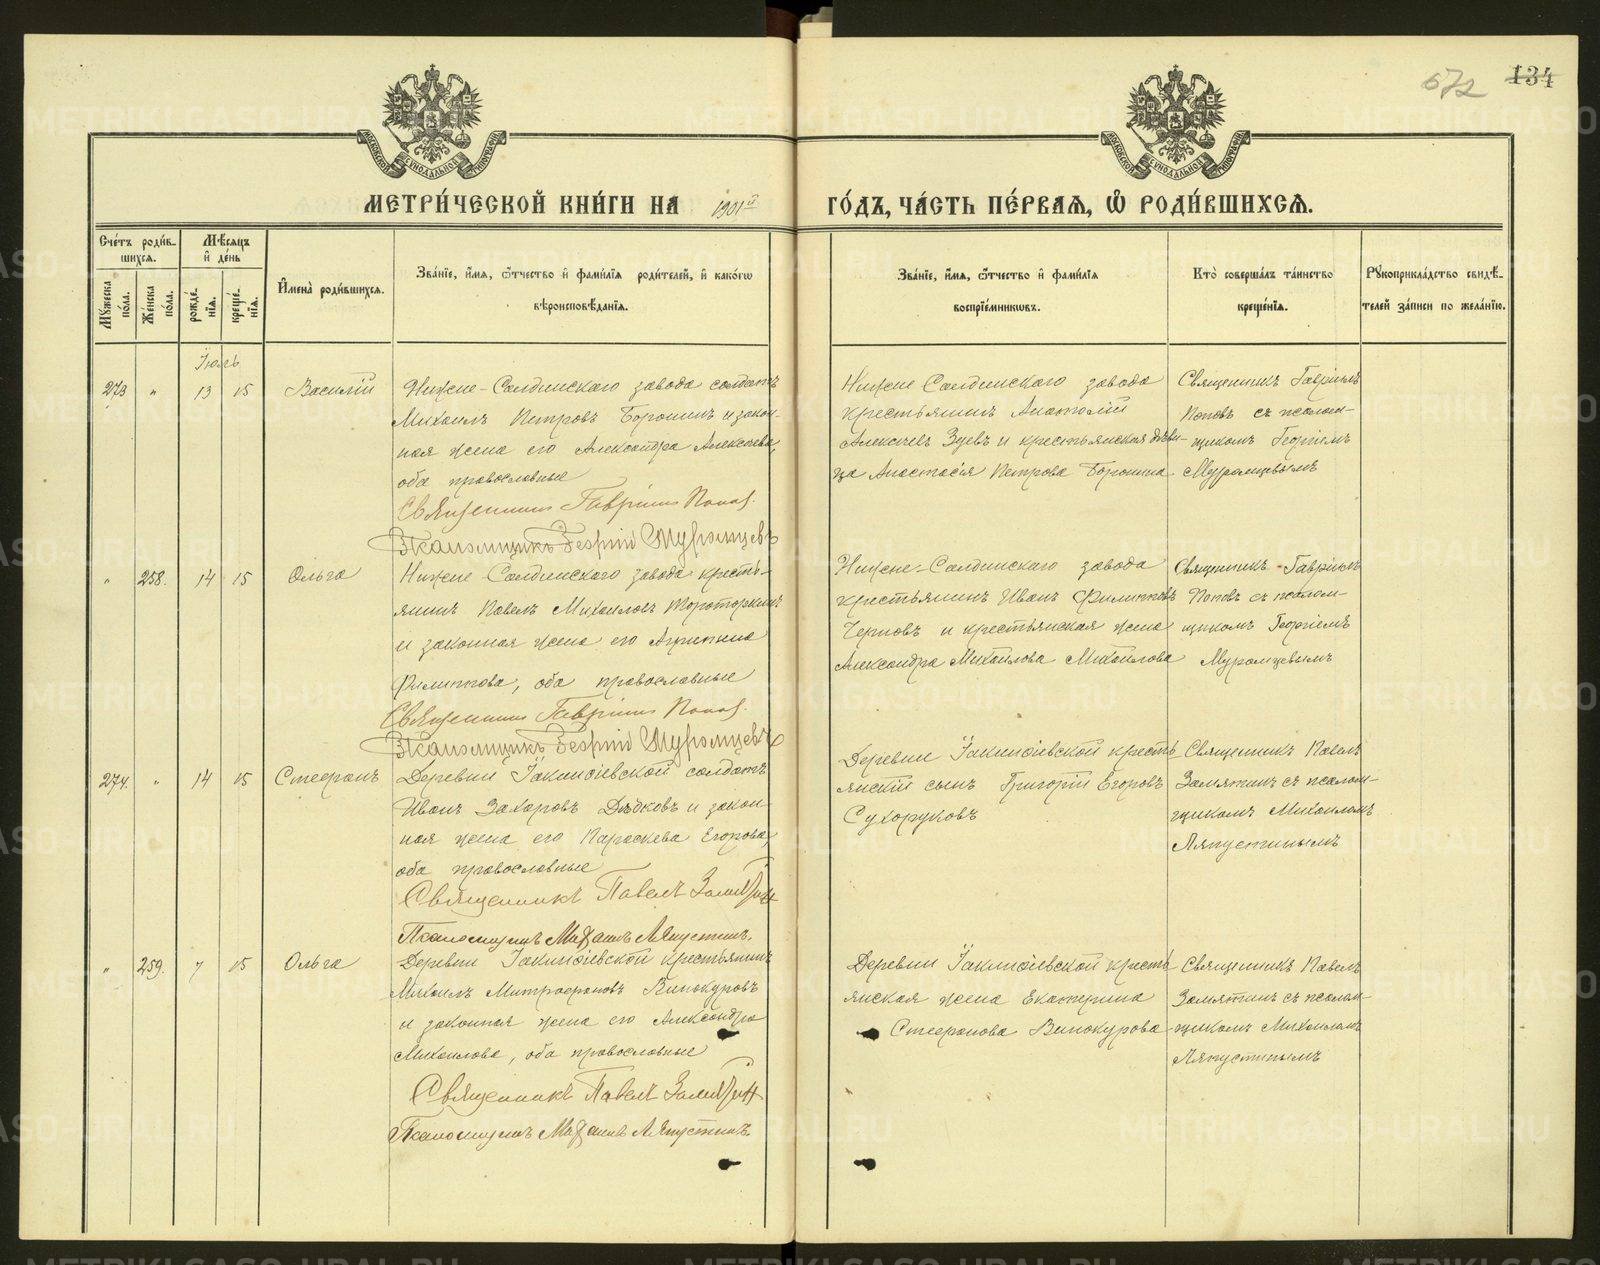 672 134
МЕТРИ́ЧЕСКОЙ КНИ́ГИ НА 1901й ГО́ДЪ, ЧА́СТЬ ПЕ́РВАѦ, Ѽ РОДИ́ВШИХСѦ.
Сче́тъ роди́в-
шихсѧ.
Мꙋ́жеска по́ла.
Же́нска по́ла.
Мѣ́сѧцъ и҆ де́нь
рожде́-нїѧ.
креще́-нїѧ.
И҆мена̀ роди́вшихсѧ.
Зва́нїе, и҆́мѧ, ѻ҆́тчество и҆ фами́лїѧ роди́телей, и҆ како́гѡ
вѣроисповѣ́данїѧ.
Зва́нїе, и҆́мѧ, ѻ҆́тчество и҆ фами́лїѧ
воспрїе́мникѡвъ.
Кто̀ соверша́лъ та́инство
креще́нїѧ.
Рꙋкоприкла́дство свидѣ́-
телей за́писи по жела́нїю.
Іюль
273 " 13 15 Василій
Нижне-Салдинскаго завода солдатъ
Михаилъ Петровъ Борошинъ и закон-
ная жена его Александра Алексѣева,
оба православные
Священникъ Гавріилъ Попов.
Псаломщикъ Георгій Муромцевъ
Нижне-Салдинскаго завода
крестьянинъ Анатолій
Алексѣевъ Зуевъ и крестьянская дѣви-
ца Анастасія Петрова Борошина
Священникъ Гавріилъ
Поповъ съ псалом-
щикомъ Георгіемъ
Муромцевымъ
" 258. 14 15 Ольга
Нижне-Салдинскаго завода кресть-
янинъ Павелъ Михаиловъ
и законная жена его Агрипина
Филиппова, оба православные
Священникъ Гавріилъ Попов.
Псаломщикъ Георгій Муромцевъ
Нижне-Салдинскаго завода
крестьянинъ Иванъ Филипповъ
Черновъ и крестьянская жена
Александра Михаилова Михаилова
Священникъ Гавріилъ
Поповъ съ псалом-
щикомъ Георгіемъ
Муромцевымъ
274. " 14 15 Стефанъ
Деревни Іакинфіевской солдатъ
Иванъ Захаровъ Дѣдковъ и закон-
ная жена его Параскева Егорова,
оба православные
Священникъ Павелъ Замятин
Псаломщикъ Михаилъ Ляпустинъ.
Деревни Іакинфіевской кресть-
янскій сынъ Григорій Егоровъ
Сухоруковъ
Священникъ Павелъ
Замятинъ съ псалом-
щикомъ Михаиломъ
Ляпустинымъ
" 259. 7 15 Ольга
Деревни Іакинфіевской крестьянинъ
Михаилъ Митрофановъ Винокуровъ
и законная жена его Александра
Михаилова, оба православные
Священникъ Павелъ Замятин
Псаломщикъ Михаилъ Ляпустинъ.
Деревни Іакинфіевской кресть-
янская жена Екатерина
Стефанова Винокурова
Священникъ Павелъ
Замятинъ съ псалом-
щикомъ Михаиломъ
Ляпустинымъ
METRIKI.GASO-URAL.RU